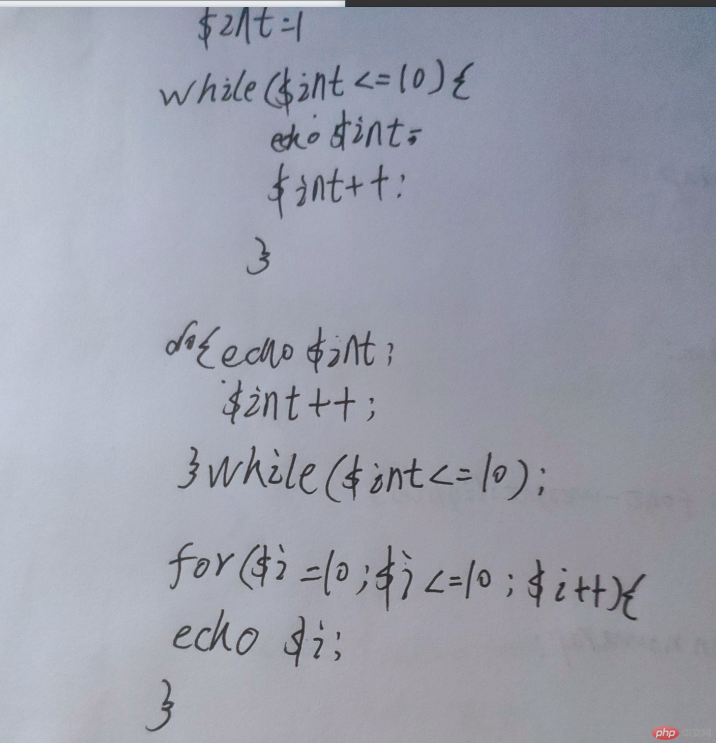 $int=1
while($int<=10){
echo $int;
$int++;
}
do{echo $int;
$int++;
}while($int<=10);
for($i=10;$i<=10;$i++){
echo $i;
}
php